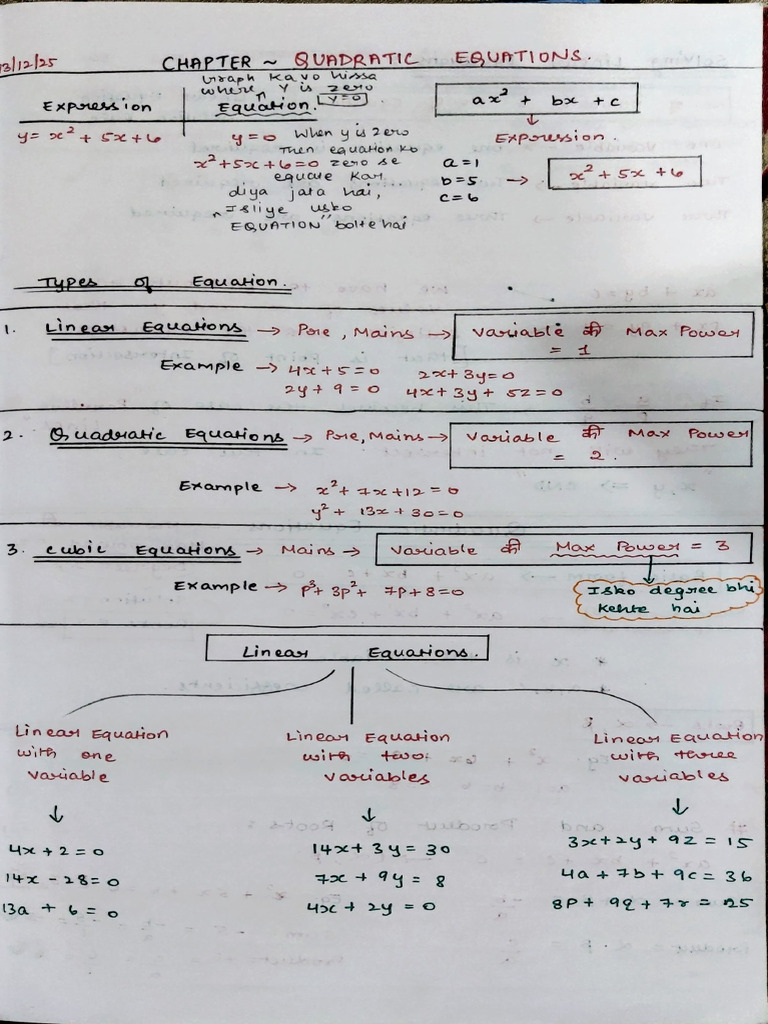 13/12/25
CHAPTER ~ QUADRATIC EQUATIONS.
Expression
Graph Ka vo hissa
where Y is zero
Equation. y=0
y = x² + 5x + 6
y = 0 When y is zero
Then equation ko
x² + 5x + 6 = 0 zero se
equate Kar
diya jata hai,
Isliye usko
"EQUATION" bolte hai
ax² + bx + c
↓
Expression.
a = 1
b = 5 → x² + 5x + 6
c = 6
Types of Equation.
1. Linear Equations → Pre, Mains → Variable की Max Power
= 1
Example → 4x + 5 = 0 2x + 3y = 0
2y + 9 = 0 4x + 3y + 5z = 0
2. Quadratic Equations → Pre, Mains → Variable की Max Power
= 2.
Example → x² + 7x + 12 = 0
y² + 13x + 30 = 0
3. Cubic Equations → Mains → Variable की Max Power = 3
Example → P³ + 3P² + 7P + 8 = 0
Isko degree bhi
Kehte hai
Linear Equations.
Linear Equation
with one
Variable
↓
4x + 2 = 0
14x - 28 = 0
13a + 6 = 0
Linear Equation
with two
Variables
↓
14x + 3y = 30
7x + 9y = 8
4x + 2y = 0
Linear Equation
with three
Variables
↓
3x + 2y + 9z = 15
4a + 7b + 9c = 36
8P + 9q + 7r = 25